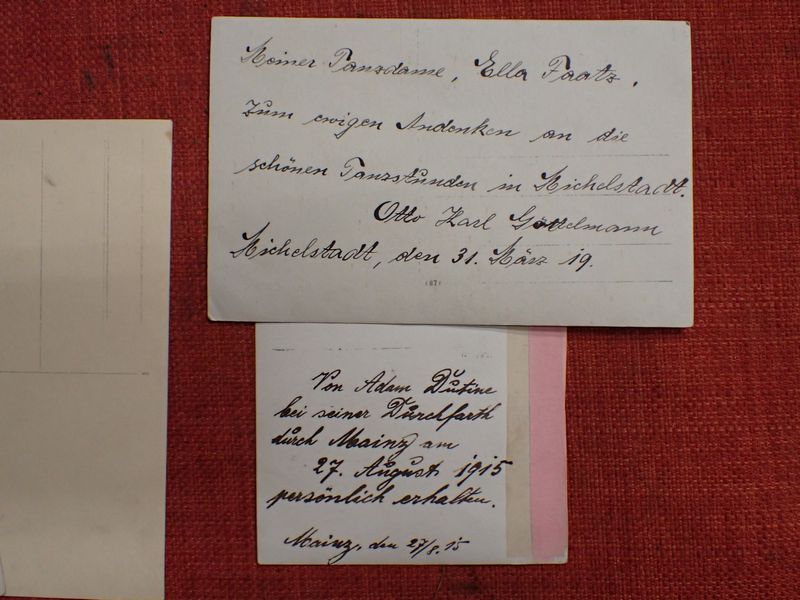 Meiner Tanzdame, Ella Faatz.
Zum ewigen Andenken an die
schönen Tanzstunden in Michelstadt.
Otto Karl Göttelmann
Michelstadt, den 31. März 19.
(87)
Von Adam Dutine
bei seiner Durchfarth
durch Mainz am
27. August 1915
persönlich erhalten.
Mainz, den 27/8.15